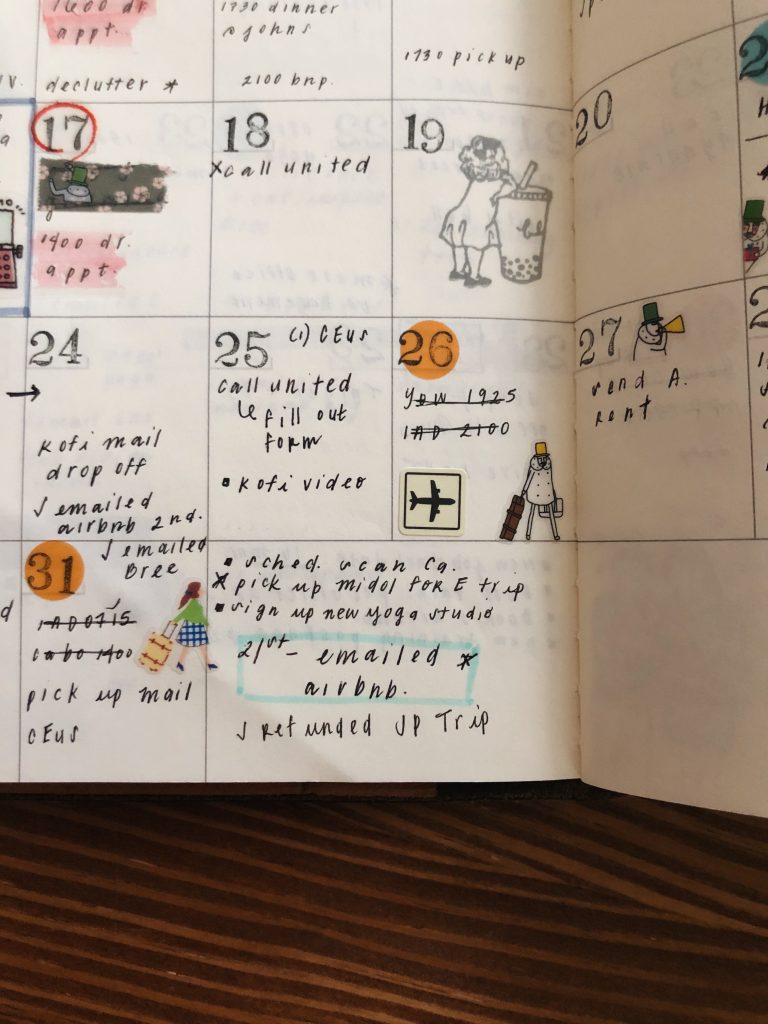 1600 dr.
appt.
declutter *
1730 dinner
@ johns
2100 bnp.
1730 pick up
17
1400 dr.
appt.
18
x call united
19
20
24
→
kofi mail
drop off
√ emailed
airbnb 2nd.
√ emailed
Bree
25 (1) CEUs
call united
↳ fill out
form
▪ kofi video
26
1925
IAD 2100
27
send A.
rent
31
IAD 0715
cabo 1400
pick up mail
CEUs
▪ sched. scan Ca.
x pick up midol for E trip
▪ sign up new yoga studio
21st - emailed *
airbnb.
√ refunded JP Trip